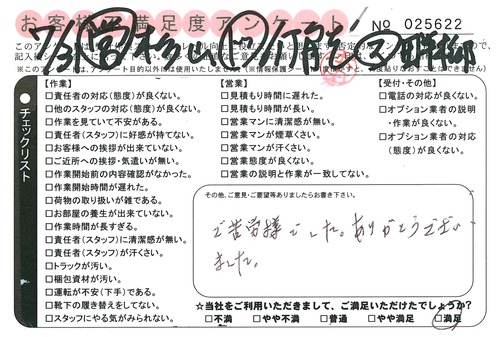 お客様満足度アンケート
No 025622
チェックリスト
【作業】
□責任者の対応(態度)が良くない。
□他のスタッフの対応(態度)が良くない。
□作業を見ていて不安がある。
□責任者(スタッフ)に好感が持てない。
□お客様への挨拶が出来ていない。
□ご近所への挨拶・気遣いが無い。
□作業開始前の内容確認がなかった。
□作業開始時間が遅れた。
□荷物の取り扱いが雑である。
□お部屋の養生が出来ていない。
□作業時間が長すぎる。
□責任者(スタッフ)に清潔感が無い。
□責任者(スタッフ)が汗くさい。
□トラックが汚い。
□梱包資材が汚い。
□運転が不安(下手)である。
□靴下の履き替えをしてない。
□スタッフにやる気がみられない。
【営業】
□見積もり時間に遅れた。
□見積もり時間が長い。
□営業マンに清潔感が無い。
□営業マンが煙草くさい。
□営業マンが汗くさい。
□営業態度が良くない。
□営業の説明と作業が一致してない。
【受付・その他】
□電話の対応が良くない。
□オプション業者の説明
・作業が良くない。
□オプション業者の対応
(態度)が良くない。
その他、ご意見・ご要望等ありましたらお書き下さい。
ご苦労様でした。ありがとうござい
ました。
☆当社をご利用いただきまして、ご満足いただけたでしょうか?
□不満 □やや不満 □普通 □やや満足 □満足